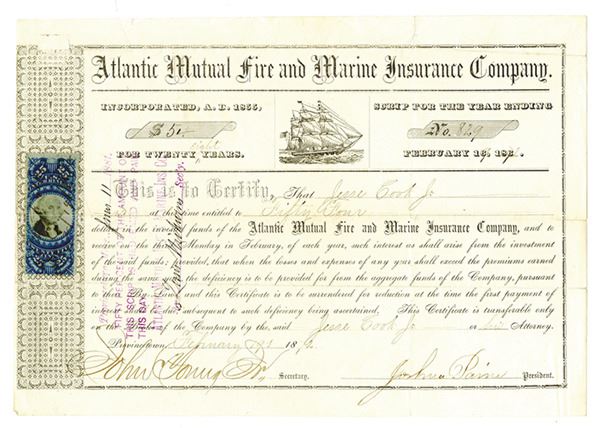 Atlantic Mutual Fire and Marine Insurance Company.
INCORPORATED, A. D. 1855,
SCRIP FOR THE YEAR ENDING
$ 54
No. 829
eight
FOR TWENTY YEARS.
FEBRUARY 16, 18
This is to Certify, That Jesse Cook Jr
at the time entitled to Fifty Four
dollars in the invested funds of the Atlantic Mutual Fire and Marine Insurance Company, and to
receive on the third Monday in February, of each year, such interest as shall arise from the investment
of the said funds; provided, that when the losses and expenses of any year shall exceed the premiums earned
during the same the deficiency is to be provided for from the aggregate funds of the Company, pursuant
to their and this Certificate is to be surrendered for reduction at the time the first payment of
interest shall due subsequent to such deficiency being ascertained. This Certificate is transferable only
on the of the Company by the said Jesse Cook Jr or his Attorney.
Provincetown, February 18
John Young Jr. Secretary.
Joshua Paine President.
25
25
FIFTY PER CENT OF THE AMOUNT OF
THIS SCRIP
THIS DAY
ATLANTIC MUTUAL FIRE & MARINE INS. CO.
Secy.